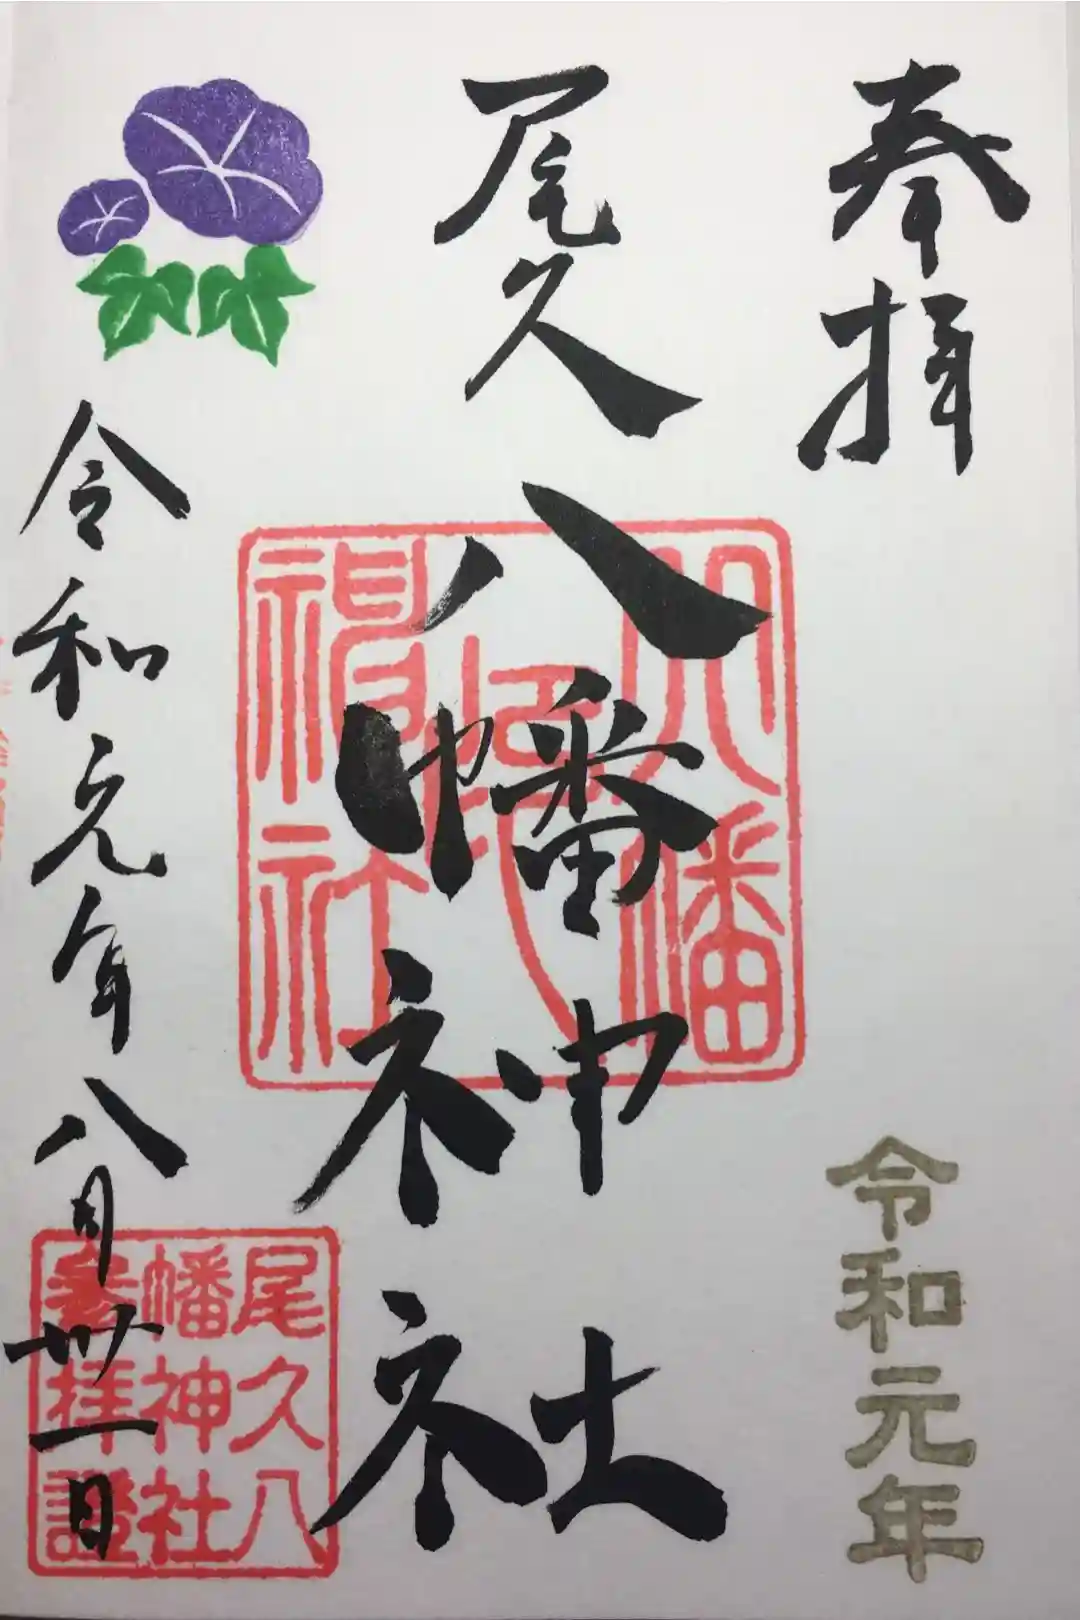 奉拝
令和元年
尾久八幡神社
八幡
神社
令和元年八月卅一日
尾久八
幡神社
参拝證